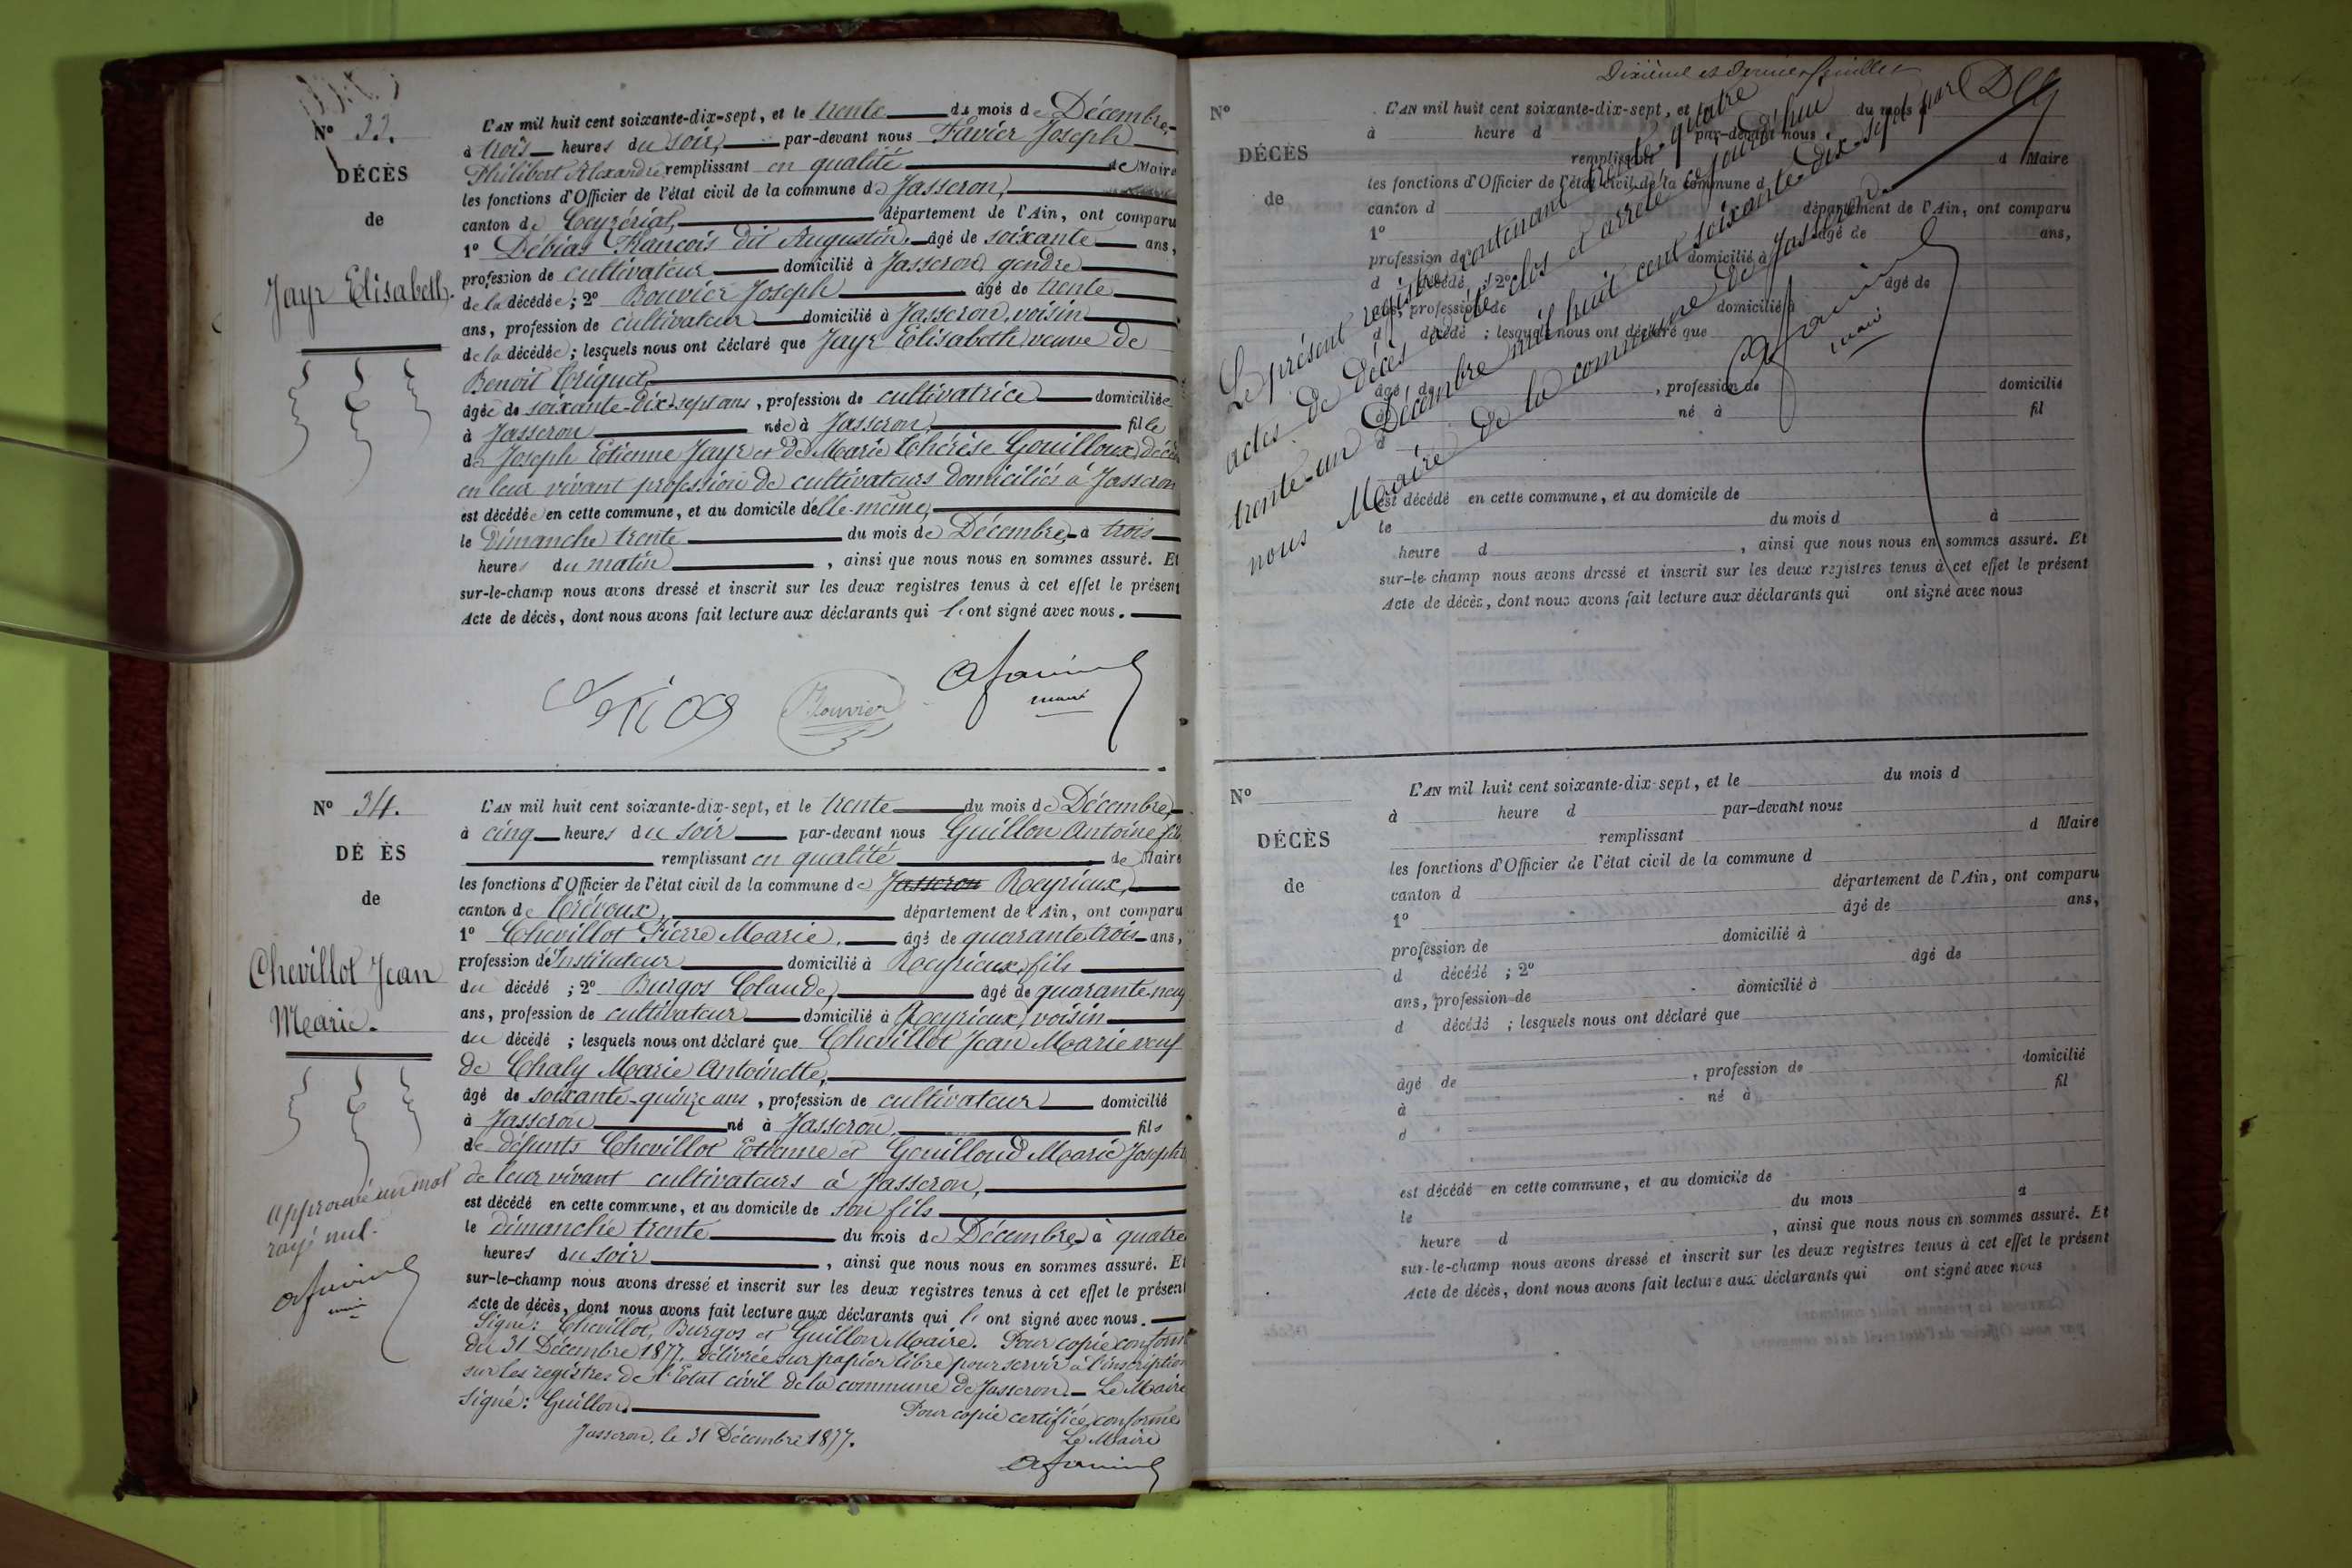 N° 33.
DÉCÈS
de
Jayr Elisabeth.
L'AN mil huit cent soixante-dix-sept, et le trente du mois de Décembre,
à trois heures du soir, par-devant nous Favier Joseph
Philibert Alexandre remplissant en qualité de Maire
les fonctions d'Officier de l'état civil de la commune de Jasseron,
canton de Ceyzériat, département de l'Ain, ont comparu
1° Débias François dit Augustin, âgé de soixante ans,
profession de cultivateur domicilié à Jasseron, gendre
de la décédée ; 2° Bouvier Joseph âgé de trente
ans, profession de cultivateur domicilié à Jasseron, voisin
de la décédée ; lesquels nous ont déclaré que Jayr Elisabeth veuve de
Benoit Criquet,
âgée de soixante-dix-sept ans, profession de cultivatrice domiciliée
à Jasseron née à Jasseron, fille
de Joseph Etienne Jayr et de Marie Thérèse Gouilloux,
en leur vivant profession de cultivateurs domiciliés à Jasseron
est décédée en cette commune, et au domicile d'elle-même,
le Dimanche trente du mois de Décembre, à trois
heures du matin, ainsi que nous nous en sommes assuré. Et
sur-le-champ nous avons dressé et inscrit sur les deux registres tenus à cet effet le présent
Acte de décès, dont nous avons fait lecture aux déclarants qui l'ont signé avec nous.
Bouvier
maire
N° 34.
DÉ ÈS
de
Chevillot Jean
Marie.
L'AN mil huit cent soixante-dix-sept, et le trente du mois de Décembre,
à cinq heures du soir par-devant nous Guillon Antoine fils
remplissant en qualité de Maire
les fonctions d'Officier de l'état civil de la commune de Jasseron Reyrieux,
canton de Trévoux, département de l'Ain, ont comparu
1° Chevillot Pierre Marie, âgé de quarante trois ans,
profession d'Instituteur domicilié à Reyrieux, fils
du décédé ; 2° Burgos Claude, âgé de quarante-neuf
ans, profession de cultivateur domicilié à Reyrieux, voisin
du décédé ; lesquels nous ont déclaré que Chevillot Jean Marie veuf
de Chaly Marie Antoinette,
âgé de soixante-quinze ans, profession de cultivateur domicilié
à Jasseron né à Jasseron, fils
de défunts Chevillot Etienne et Gouilloud Marie Josephte
de leur vivant cultivateurs à Jasseron,
est décédé en cette commune, et au domicile de son fils
le dimanche trente du mois de Décembre, à quatre
heures du soir, ainsi que nous nous en sommes assuré. Et
sur-le-champ nous avons dressé et inscrit sur les deux registres tenus à cet effet le présent
Acte de décès, dont nous avons fait lecture aux déclarants qui l'ont signé avec nous.
Signé : Chevillot, Burgos et Guillon Maire. Pour copie conforme
du 31 Décembre 1877, délivrée sur papier libre pour servir à l'inscription
sur les registres de l'Etat civil de la commune de Jasseron. Le Maire
Signé : Guillon. Pour copie certifiée conforme
Jasseron, le 31 Décembre 1877. Le Maire
approuvé un mot
rayé nul.
maire
Dixième et dernier feuillet
Le présent registre contenant trente-quatre
actes de décès a été clos et arrêté ce jourd'hui
trente-un Décembre mil huit cent soixante-dix-sept par
nous Maire de la commune de Jasseron.
maire
N°
DÉCÈS
de
L'AN mil huit cent soixante-dix-sept, et le du mois d
à heure d par-devant nous
remplissant d Maire
les fonctions d'Officier de l'état civil de la commune d
canton d département de l'Ain, ont comparu
1° âgé de ans,
profession de domicilié à
d décédé ; 2° âgé de
ans, profession de domicilié à
d décédé ; lesquels nous ont déclaré que
âgé de , profession de domicilié
à né à fil
d
est décédé en cette commune, et au domicile de
le du mois d à
heure d , ainsi que nous nous en sommes assuré. Et
sur-le-champ nous avons dressé et inscrit sur les deux registres tenus à cet effet le présent
Acte de décès, dont nous avons fait lecture aux déclarants qui ont signé avec nous
N°
DÉCÈS
de
L'AN mil huit cent soixante-dix-sept, et le du mois d
à heure d par-devant nous
remplissant d Maire
les fonctions d'Officier de l'état civil de la commune d
canton d département de l'Ain, ont comparu
1° âgé de ans,
profession de domicilié à
d décédé ; 2° âgé de
ans, profession de domicilié à
d décédé ; lesquels nous ont déclaré que
âgé de , profession de domicilié
à né à fil
d
est décédé en cette commune, et au domicile de
le du mois à
heure d , ainsi que nous nous en sommes assuré. Et
sur-le-champ nous avons dressé et inscrit sur les deux registres tenus à cet effet le présent
Acte de décès, dont nous avons fait lecture aux déclarants qui ont signé avec nous